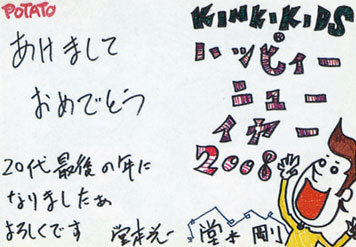 POTATO
あけまして
おめでとう
20代最後の年に
なりましたぁ
よろしくです
堂本光一
KINKI・KIDS
ハッピィー
ニュー
イヤー
2008
堂本剛